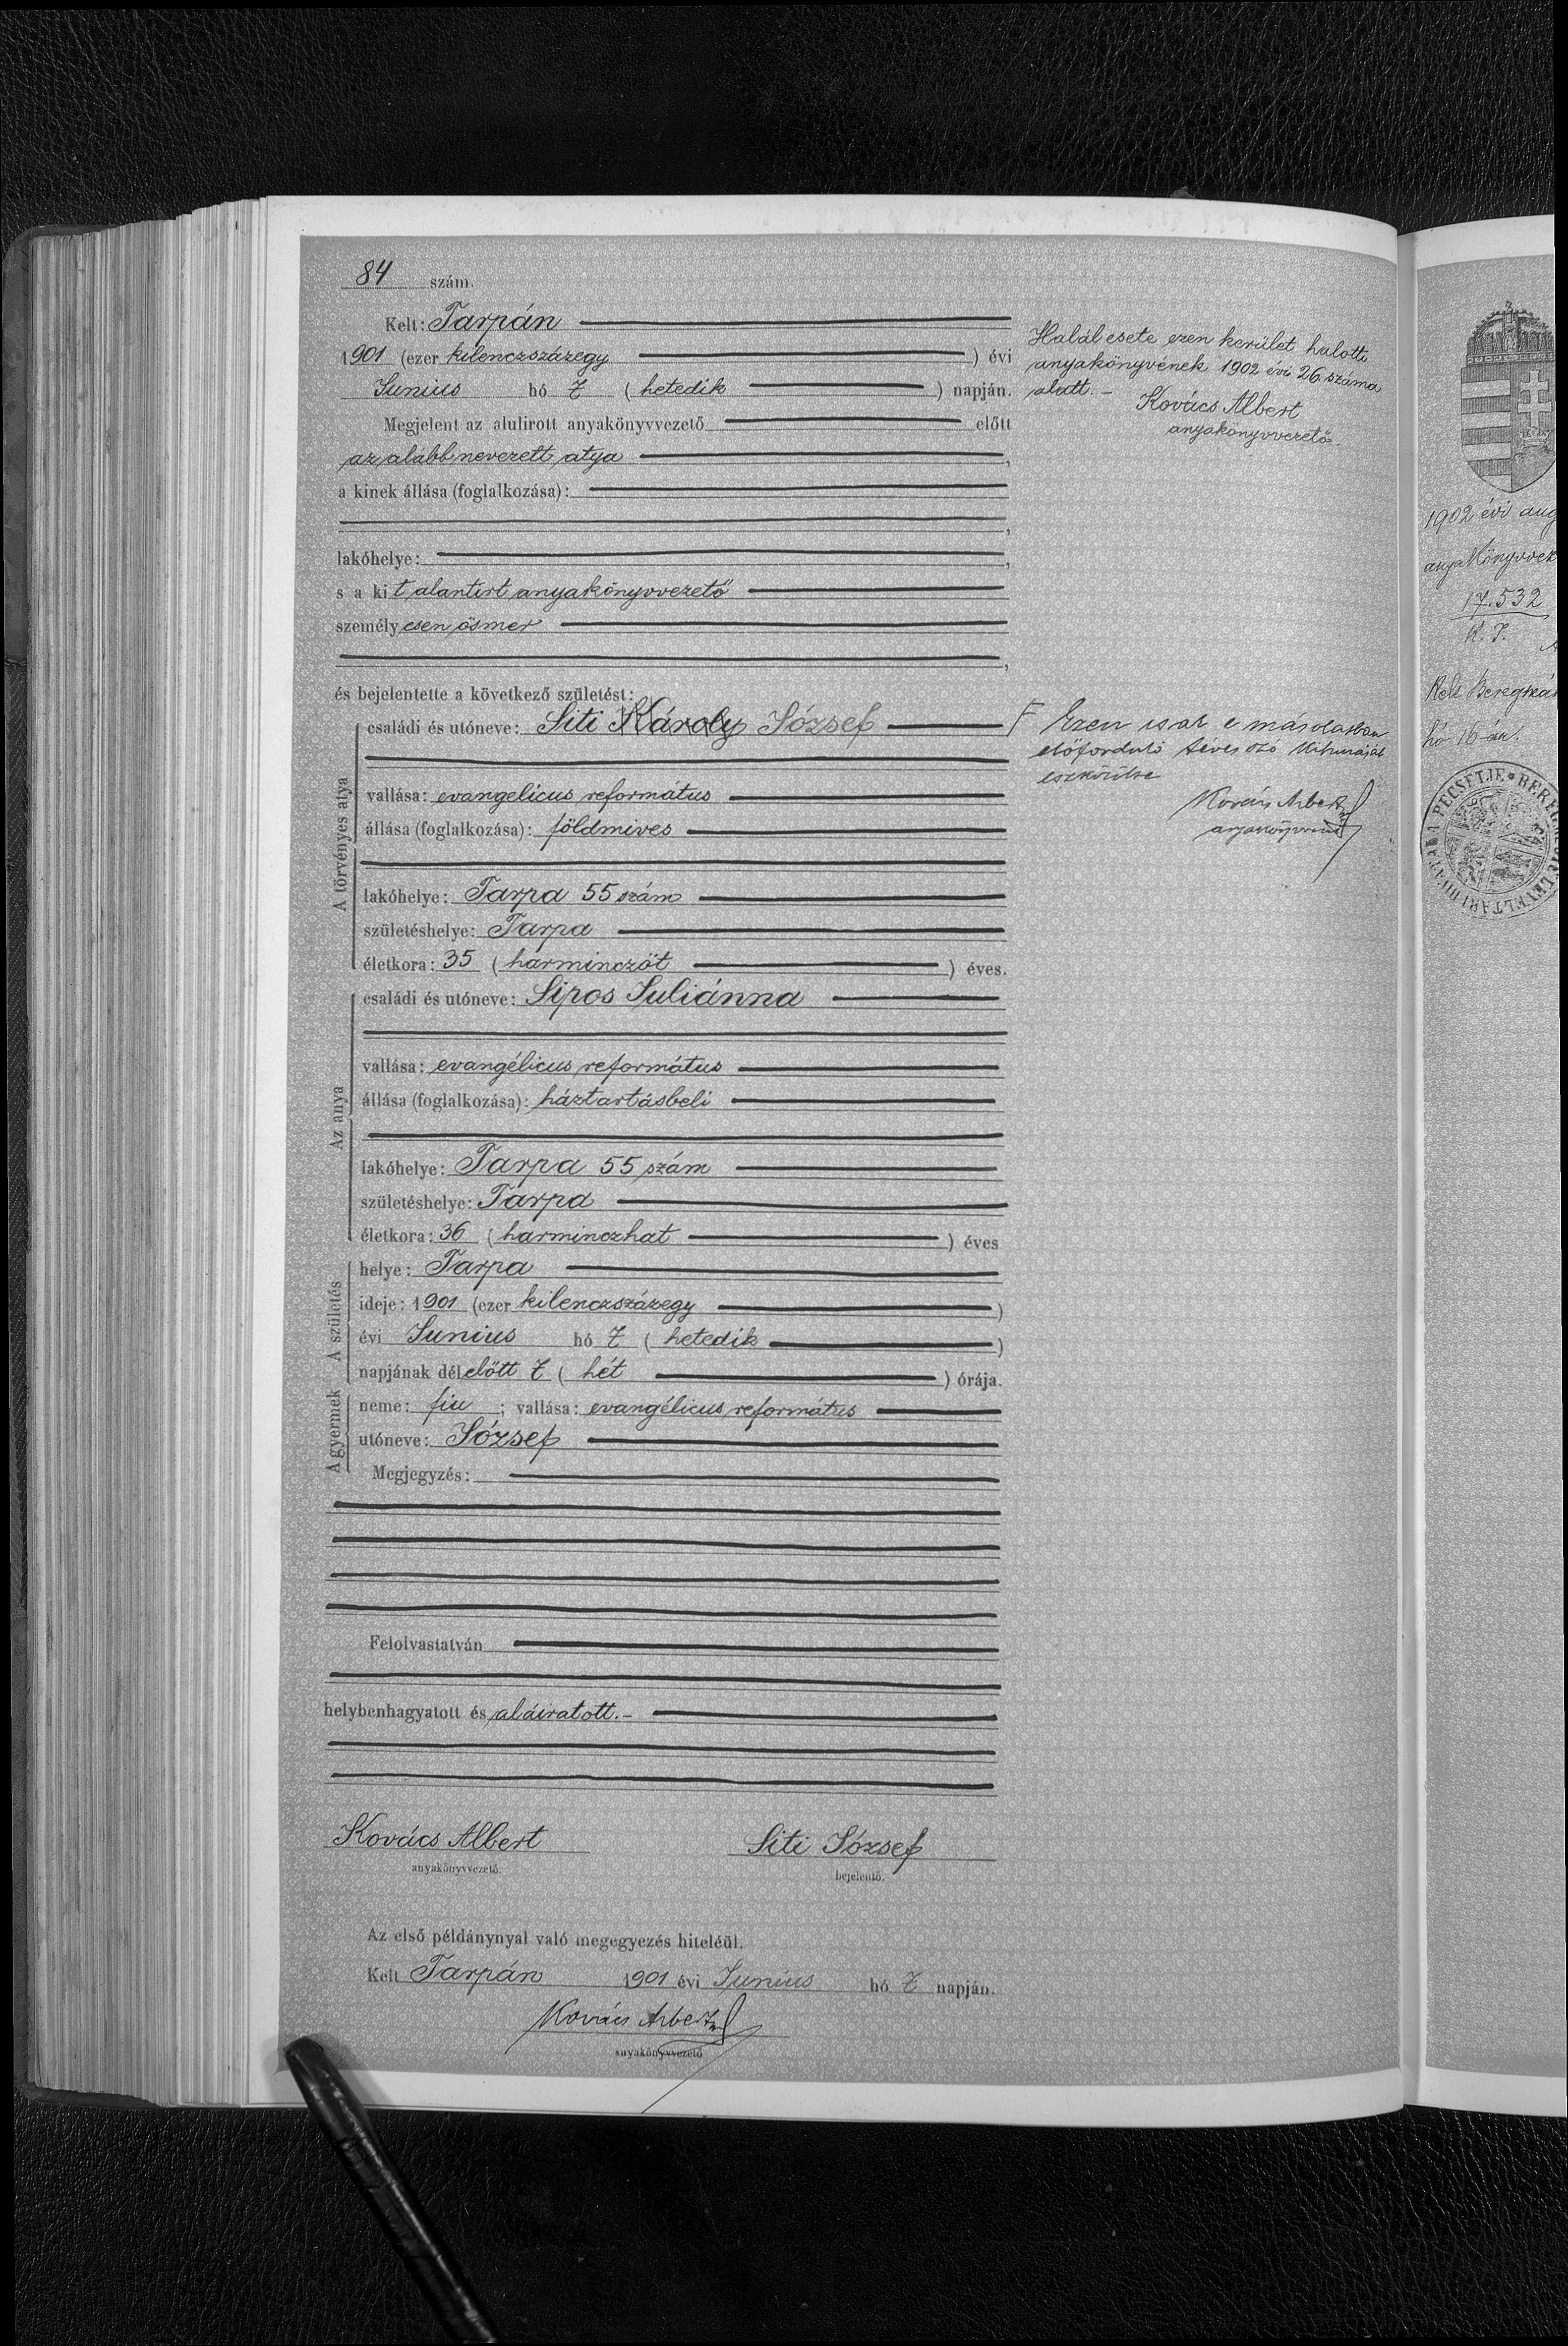 84 szám.
Kelt: Tarpán
1901 (ezer kilenczszázegy ) évi
Junius hó 7 (hetedik ) napján.
Megjelent az alulirott anyakönyvvezető előtt
az alább nevezett atya ,
a kinek állása (foglalkozása):
,
lakóhelye: ,
s a kit alantirt anyakönyvvezető
személyesen ösmer
,
és bejelentette a következő születést:
A törvényes atya
családi és utóneve: Siti Károly József
vallása: evangelicus református
állása (foglalkozása): földmives
lakóhelye: Tarpa 55 szám
születéshelye: Tarpa
életkora: 35 (harminczöt ) éves.
Az anya
családi és utóneve: Sipos Juliánna
vallása: evangélicus református
állása (foglalkozása): háztartásbeli
lakóhelye: Tarpa 55 szám
születéshelye: Tarpa
életkora: 36 (harminczhat ) éves
A születés
helye: Tarpa
ideje: 1901 (ezer kilenczszázegy )
évi Junius hó 7 (hetedik )
napjának délelőtt 7 (hét ) órája.
A gyermek
neme: fiu ; vallása: evangélicus református
utóneve: József
Megjegyzés:
Felolvastatván
helybenhagyatott és aláiratott.-
Kovács Albert
anyakönyvvezető.
Siti József
bejelentő.
Az első példánynyal való megegyezés hiteléül.
Kelt Tarpán 1901 évi Junius hó 7 napján.
Kovács Albert
anyakönyvvezető
Halálesete ezen kerület halotti
anyakönyvének 1902 évi 26 száma
alatt. -
Kovács Albert
anyakönyvvezető.
F Ezen csak e másolatban
előforduló téves szó kihuzását
eszközölte
Kovács Albert
anyakönyvvezető
1902 évi aug
17.532
K. I.
Kelt Beregszás
hó 16-án.